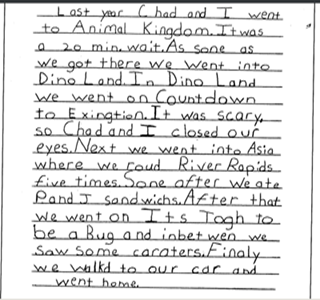 Last year Chad and I went
to Animal Kingdom. It was
a 20 min. wait. As sone as
we got there we went into
Dino Land. In Dino Land
we went on Countdown
to Exingtion. It was scary,
so Chad and I closed our
eyes. Next we went into Asia
where we roud River Rapids
five times. Sone after we ate
P and J sandwichs. After that
we went on Its Togh to
be a Bug and inbetwen we
saw some caraters. Finaly
we walkd to our car and
went home.